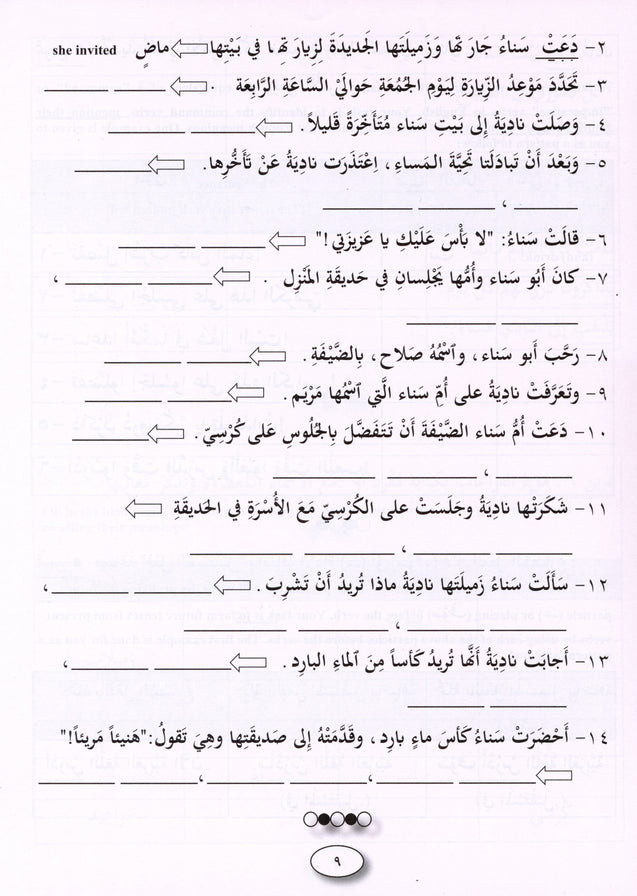 ٢- دَعَتْ سَناءُ جَارَتَها وَزَميلَتَها الجَديدَةَ لِزِيارَتِها في بَيْتِها ماضٍ she invited
٣- تَحَدَّدَ مَوْعِدُ الزِّيارَةِ لِيَوْمِ الجُمُعَةِ حَوالَيْ السَّاعَةِ الرَّابِعَة .
٤- وَصَلَتْ نادِيَةُ إلى بَيْتِ سَناء مُتَأَخِّرَةً قَليلاً.
٥- وَبَعْدَ أنْ تَبادَلَتا تَحِيَّةَ المَساءِ، اِعْتَذَرَت نادِيَةُ عَنْ تَأَخُّرِها.
،
٦- قالَتْ سَناءُ: "لا بَأْسَ عَلَيْكِ يا عَزيزَتي!"
٧- كانَ أَبُو سَناء وأُمُّها يَجْلِسانِ في حَديقَةِ المَنْزِلِ . ،
٨- رَحَّبَ أبو سَناء، وٱسْمُهُ صَلاح، بِالضَّيْفَةِ.
٩- وتَعَرَّفَتْ نادِيَةُ على أُمِّ سَناء الَّتي ٱسْمُها مَرْيَم.
١٠- دَعَتْ أُمُّ سَناء الضَّيْفَةَ أَنْ تَتَفَضَّلَ بِالجُلُوسِ عَلى كُرْسِيّ.
،
١١- شَكَرَتْها نادِيَةُ وجَلَسَتْ على الكُرْسِيّ مَعَ الأُسْرَةِ في الحَديقَةِ
،
١٢- سَأَلَتْ سَناءُ زَميلَتَها نادِيَةُ ماذا تُريدُ أَنْ تَشْرَبَ. ،
،
١٣- أَجابَتْ نادِيَةُ أَنَّها تُريدُ كَأْساً مِنَ ٱلماءِ البارِد. ،
١٤- أَحْضَرَتْ سَناءُ كَأْسَ ماءٍ بارِد، وقَدَّمَتْهُ إلى صَديقَتِها وهِيَ تَقولُ: "هَنيئاً مَريئاً!"
، ، ،
٩